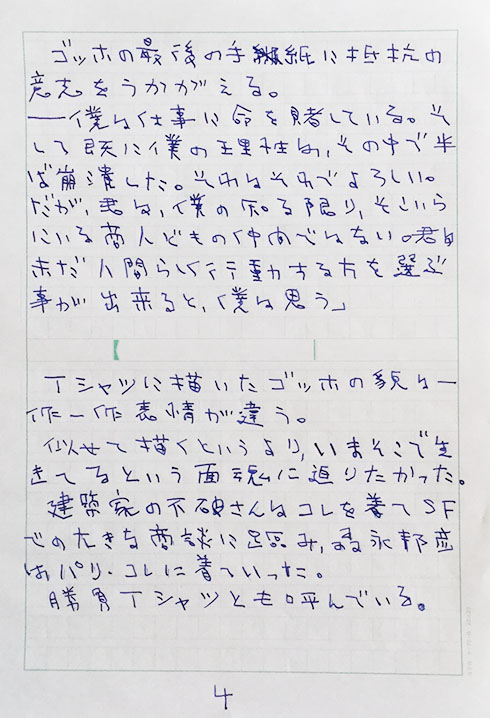 ゴッホの最後の手紙に抵抗の
意志をうかがえる。
──僕は仕事に命を賭している。そ
して既に僕の理性は、その中で半
ば崩潰した。それはそれでよろしい。
だが、君は、僕の知る限り、そこいら
にいる商人どもの仲間ではない。君は
未だ人間らしく行動する方を選ぶ
事が出来ると、僕は思う」
Tシャツに描いたゴッホの貌は一
作一作表情が違う。
似せて描くというより、いまそこで生
きてるという面魂に迫りたかった。
建築家の不破さんはコレを着てSF
での大きな商談に臨み、永邦彦
はパリ・コレに着ていった。
勝負Tシャツとも呼んでいる。
4